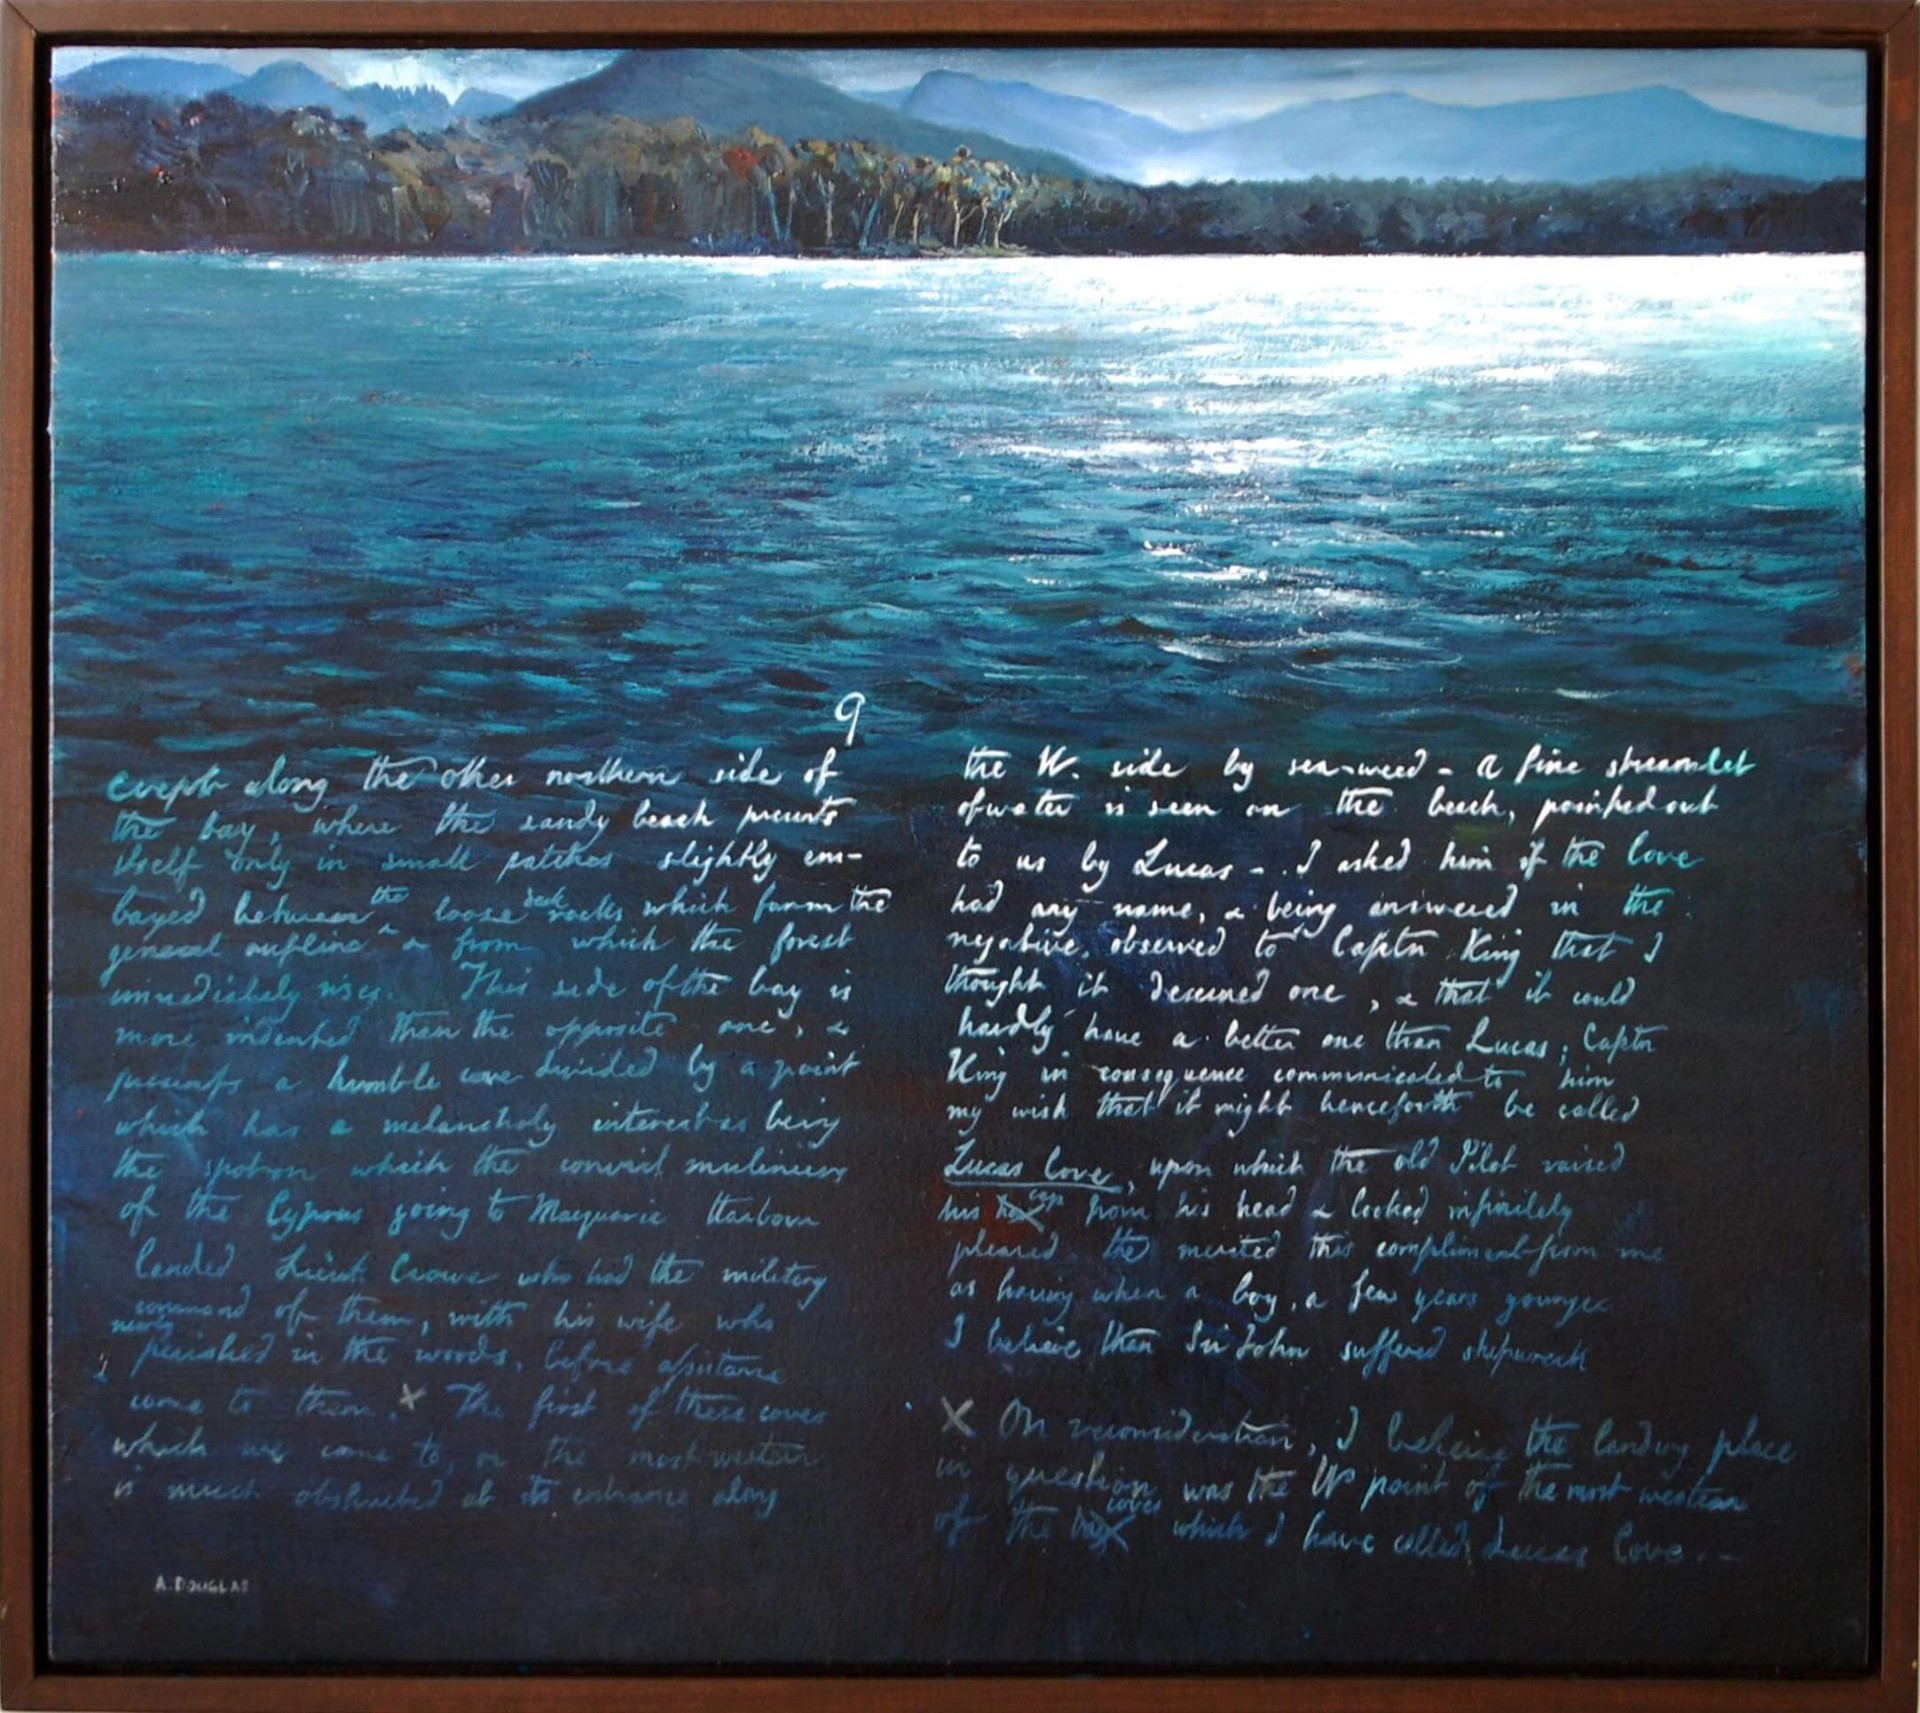 9
crept along the other northern side of
the bay, where the sandy beach presents
itself only in small patches slightly em-
bayed between the loose dark rocks which form the
general outline & from which the forest
immediately rises. This side of the bay is
more indented than the opposite one, &
presents a humble cove divided by a point
which has a melancholy interest as being
the spot on which the convict mutineers
of the Cyprus going to Macquarie Harbour
landed Lieut. Crowe who had the military
command of them, with his wife who
nearly perished in the woods, before assistance
came to them. X The first of these coves
which we came to, or the most western
is much obstructed at its entrance along
the W. side by sea-weed - A fine streamlet
of water is seen on the beach, pointed out
to us by Lucas - I asked him if the Cove
had any name, & being answered in the
negative, observed to Captn King that I
thought it deserved one, & that it could
hardly have a better one than Lucas; Captn
King in consequence communicated to him
my wish that it might henceforth be called
Lucas Cove, upon which the old Pilot raised
his cap from his head & looked infinitely
pleased. He merited this compliment from me
as having when a boy, a few years younger
I believe than Sir John suffered shipwreck
X On reconsideration, I believe the landing place
in question was the W point of the most western
of the coves which I have called Lucas Cove. -
A. DOUGLAS